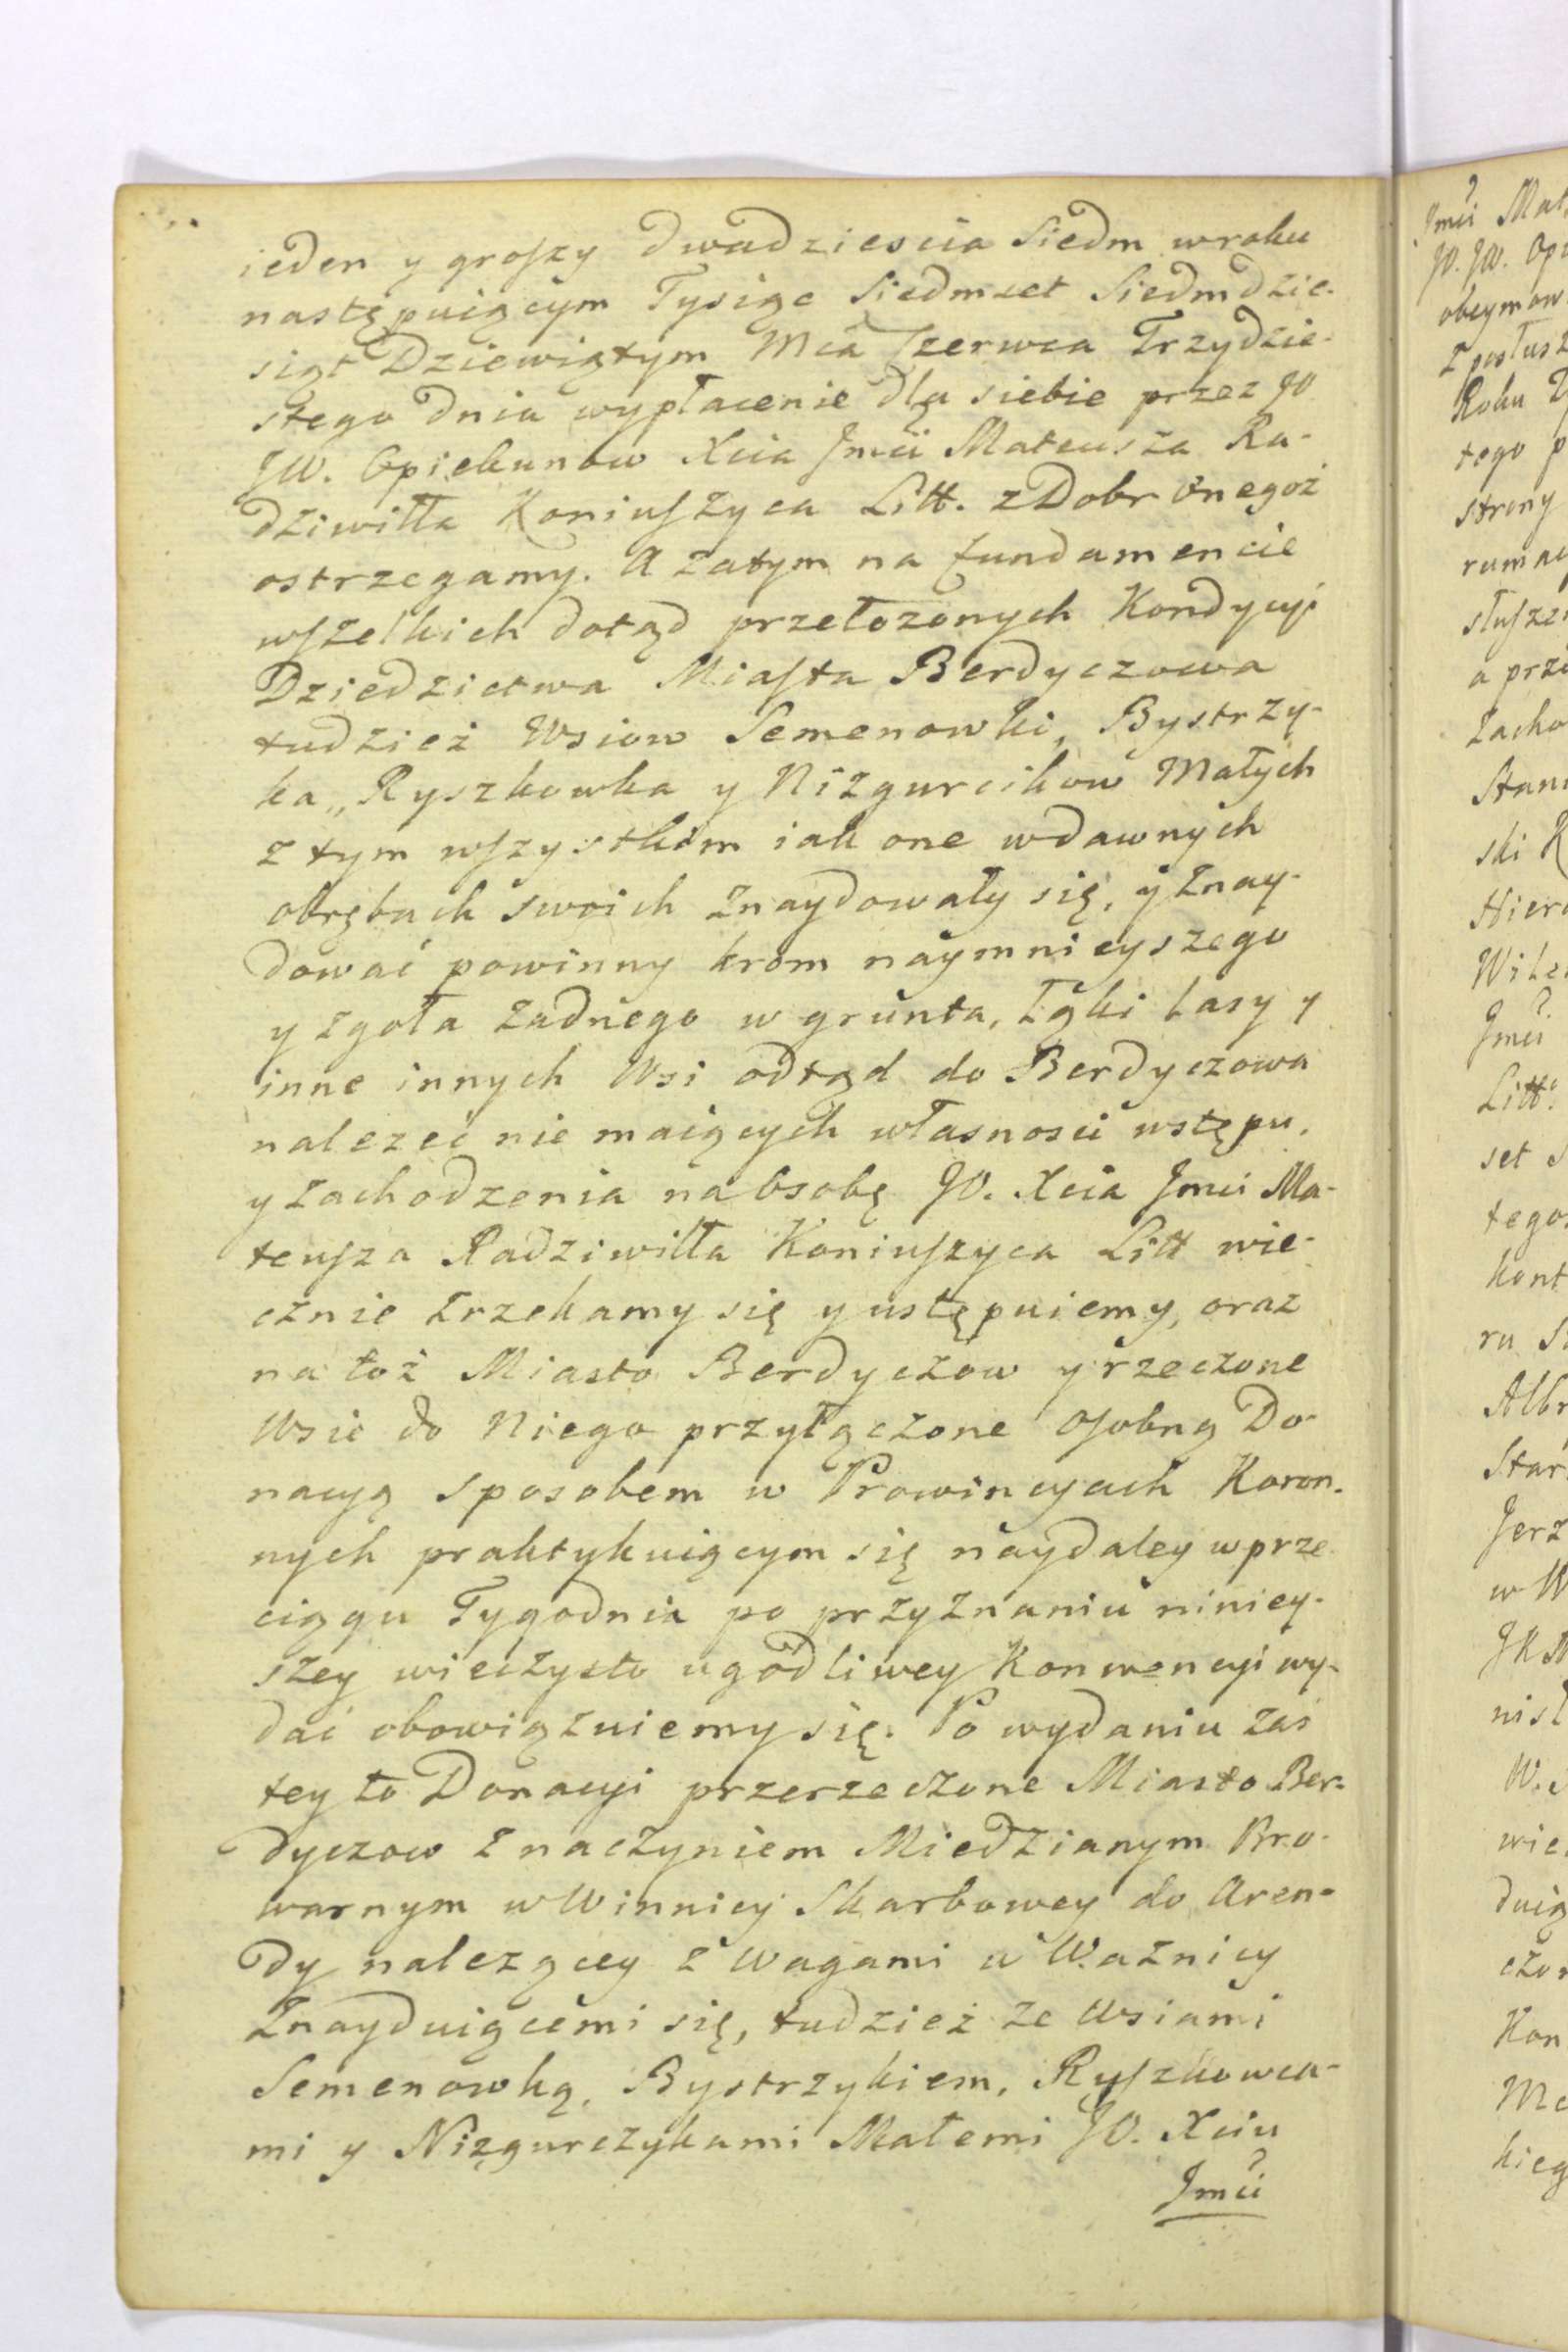 ieden y groszy dwadziescia Siedm w roku
następuiącym Tysiąc Siedmset Siedmdzie-
siąt Dziewiątym Mca Czerwca Trzydzie-
stego dnia wypłacenie dla siebie przez JO
JW. Opiekunow Xcia Jmci Mateusza Ra-
dziwiłła Koniuszyca Litt. z Dobr onegoż
ostrzegamy. A zatym na fundamencie
wszelkich dotąd przełozonych Kondycyi
Dziedzictwa Miasta Berdyczowa
tudzież Wsiow Semenowki, Bystrzy-
ka,, Ryszkowka y Nizgurcikow Małych
z tym wszystkim iak one w dawnych
obrębach swoich znaydowały się, y znay-
dować powinny krom naymnieyszego
y zgoła żadnego w grunta, Łąki Lasy y
inne innych Wsi odtąd do Berdyczowa
nalezeć nie maiących własnosci wstępu,
y zachodzenia na Osobę JO. Xcia Jmci Ma-
teusza Radziwiłła Koniuszyca Litt wie-
cznie zrzekamy się y ustępuiemy, oraz
na toż Miasto Berdyczow y rzeczone
Wsie do Niego przyłączone Osobną Do-
nacyą sposobem w Prowincyach Koron-
nych praktykuiącym się naydaley w prze
ciągu Tygodnia po przyznaniu niniey-
szey wieczysto ugodliwey Konwencyi wy-
dać obowiązuiemy się. Po wydaniu zaś
tey to Donacyi przerzeczone Miasto Ber-
dyczow z naczyniem Miedzianym Bro-
warnym w Winnicy Skarbowey do Aren-
dy nalezącey z Wagami w Waznicy
znayduiącemi się, tudzież ze Wsiami
Semenowką, Bystrzykiem, Ryszkowca-
mi y Nizgurczykami Małemi JO. Xciu
Jmci
Jmci Mat
JO. JW. Opi
obeymow
z posłusz
Roku T
tego p
strony
rumac
słuszen
a prze
zacho
Stani
ski K
Hiero
Wilen
Jmci
Litt.
set S
tegoż
kont
ru S
Albr
Star
Jerz
w W
JK M
nisł
W. S
wie
duią
czon
Kon
Mc
kieg